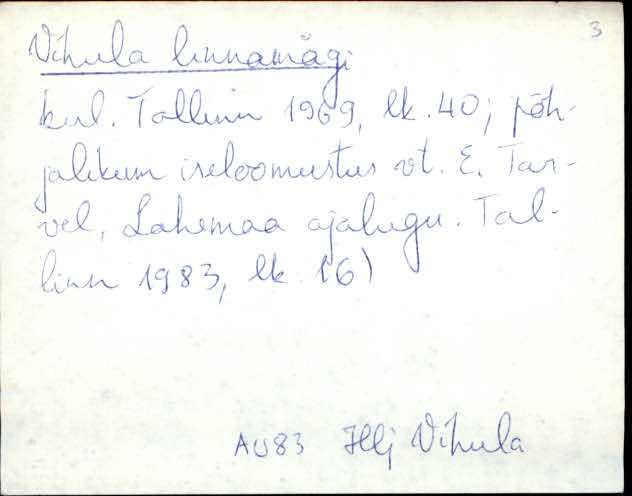 3
Vihula linnamägi
kul. Tallinn 1969, lk. 40; põh-
jalikum iseloomustus vt. E. Tar-
vel, Lahemaa ajalugu. Tal-
linn 1983, lk. 16)
AU83 Hlj Vihula